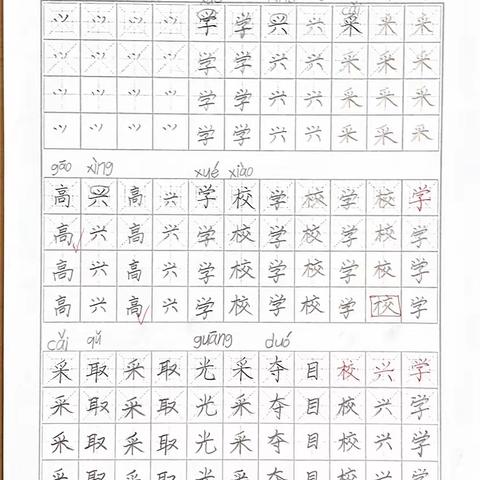 ⺍ ⺍ ⺍ ⺍ 学 学 兴 兴 采 采 采
⺍ ⺍ ⺍ ⺍ 学 学 兴 兴 采 采 采
⺍ ⺍ ⺍ ⺍ 学 学 兴 兴 采 采 采
⺍ ⺍ ⺍ ⺍ 学 学 兴 兴 采 采 采
gāo xìng xué xiào
高 兴 高 兴 学 校 学 校 学 校 学
高 兴 高 兴 学 校 学 校 学 校 学
高 兴 高 兴 学 校 学 校 学 校 学
高 兴 高 兴 学 校 学 校 学 校 学
cǎi qǔ guāng duó
采 取 采 取 光 采 夺 目 校 兴 学
采 取 采 取 光 采 夺 目 校 兴 学
采 取 采 取 光 采 夺 目 校 兴 学
采 取 采 取 光 采 夺 目 校 兴 学